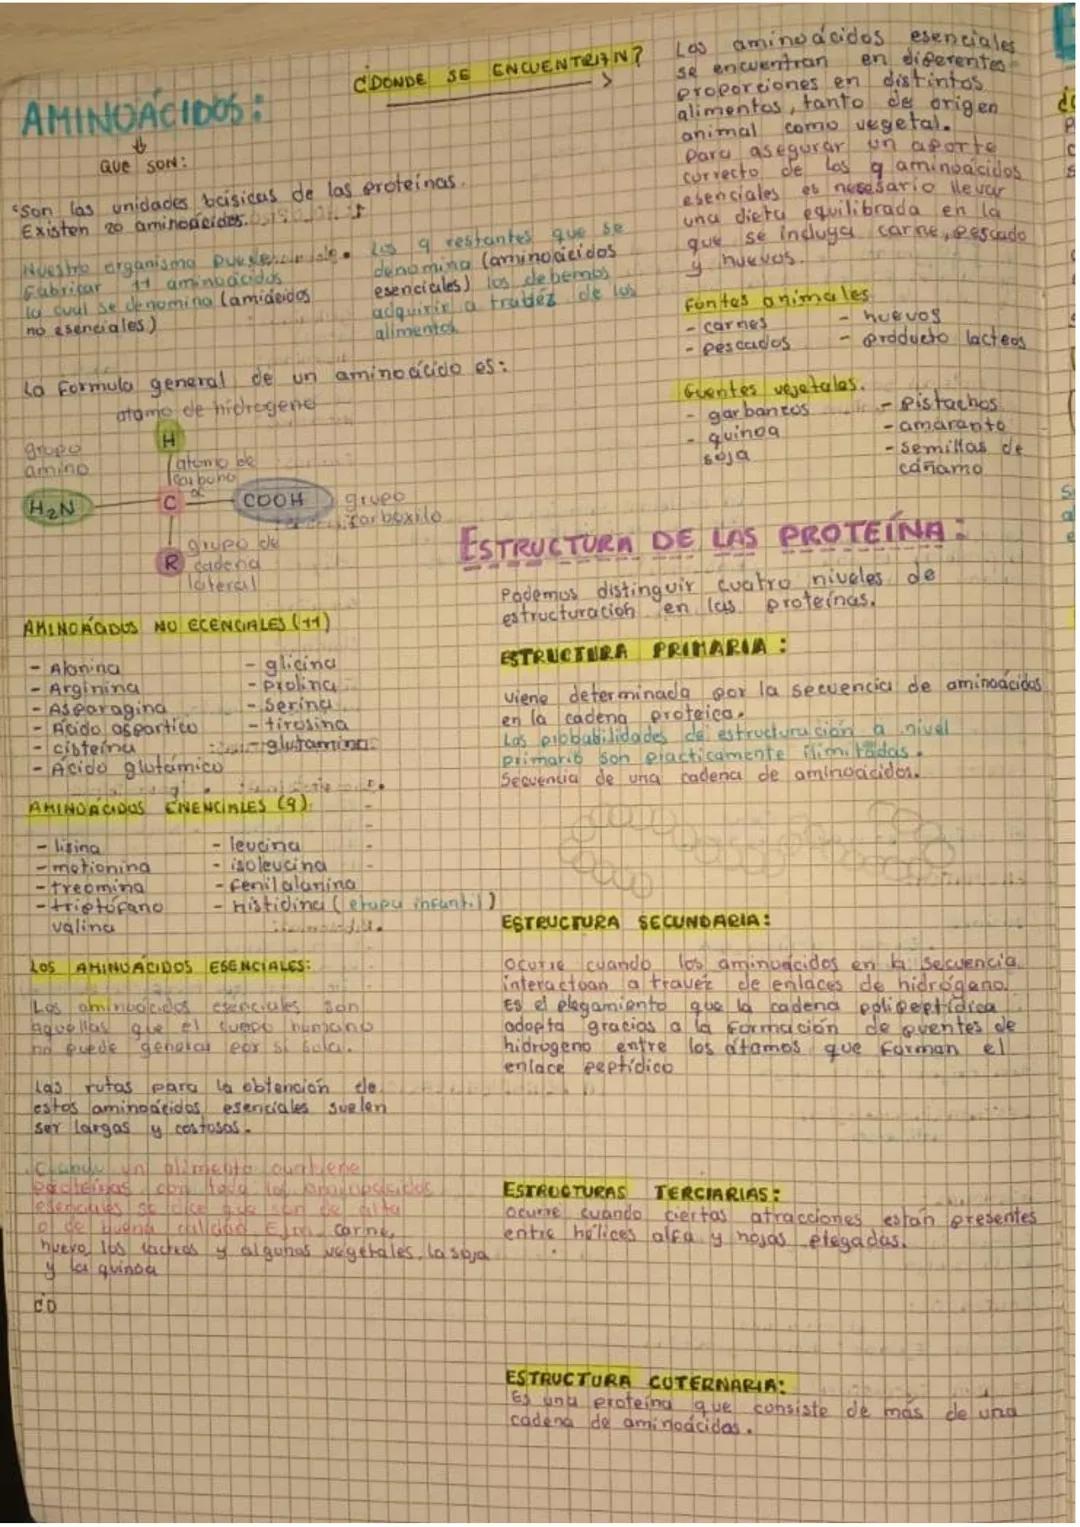 AMINOÁCIDOS:
QUE SON:
Son las unidades básicas de las proteínas.
Existen 20 aminoácidos.
Nuestro organismo puede
fabricar 11 aminoácidos
la cual se denomina (amiácidos
no esenciales)
Los 9 restantes que se
denomina (aminoácidos
esenciales) los debemos
adquirir a travéz de los
alimentos
La formula general de un aminoácido es:
atomo de hidrogeno
H
grupo
amino
atomo de
carbono
α
H₂N
C
COOH
grupo
carboxilo
R
grupo de
cadena
lateral
AMINOÁCIDOS NO ECENCIALES (11)
- Alanina
- Arginina
- Asparagina
- Ácido aspartico
- cisteína
- Ácido glutámico
- glicina
- prolina
- serina
- tirosina
- glutamina
AMINOÁCIDOS ENENCIALES (9)
- lisina
- metionina
- treomina
- triptófano
valina
- leucina
- isoleucina
- fenilalanina
- histidina (etapa infantil)
LOS AMINOÁCIDOS ESENCIALES:
Los aminoácidos esenciales son
aquellos que el cuerpo humano
no puede generar por si solo.
Las rutas para la obtención de
estos aminoácidos esenciales suelen
ser largas y costosas.
Cuando un alimento contiene
proteínas con todo los aminoácidos
esenciales se dice que son de alta
o de buena calidad Ejm carne,
huevo, los lácteos y algunos vegetales, la soja
y la quinoa
¿DONDE SE ENCUENTRAN?
Los aminoácidos esenciales
se encuentran en diferentes
proporciones en distintos
alimentos, tanto de origen
animal como vegetal.
Para asegurar un aporte
correcto de los 9 aminoácidos
esenciales es nesesario llevar
una dieta equilibrada en la
que se incluya carne, pescado
y huevos.
Funtes animales
- carnes
- pescados
- huevos
- producto lacteos
Fuentes vejetales.
- garbanzos
- quinoa
soja
- Pistachos
- amaranto
- semillas de
cáñamo
ESTRUCTURA DE LAS PROTEÍNA:
Podemos distinguir cuatro niveles de
estructuración en las proteínas.
ESTRUCTURA PRIMARIA:
viene determinada por la secuencia de aminoácidos
en la cadena proteica.
Las probabilidades de estructuración a nivel
primario son practicamente ilimitadas.
Secuencia de una cadena de aminoácidos.
ESTRUCTURA SECUNDARIA:
ocurre cuando los aminoácidos en la secuencia
interactuan a travéz de enlaces de hidrógeno.
Es el plegamiento que la cadena polipeptídica
adopta gracias a la formación de puentes de
hidrogeno entre los átomos que forman el
enlace peptídico
ESTRUCTURAS TERCIARIAS:
ocurre cuando ciertas atracciones están presentes
entre hélices alfa y hojas plegadas.
ESTRUCTURA CUTERNARIA:
Es una proteína que consiste de más de una
cadena de aminoácidos.